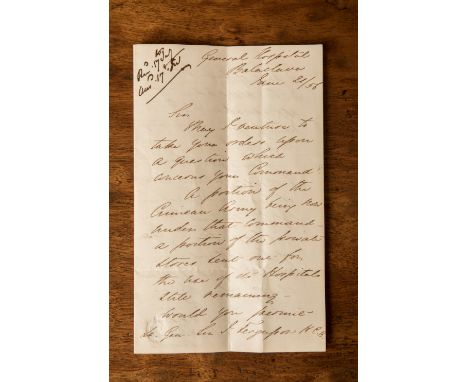 General Hospital
Balaclava
June 21/56
Sir
May I venture to
take your orders upon
a question which
concerns your Command?
A portion of the
Crimean Army being now
under that command
a portion of the private
stores sent out for
the use of its Hospitals
still remaining
would you permit
Lt. Gen. Sir J. Fergusson K.C.B.